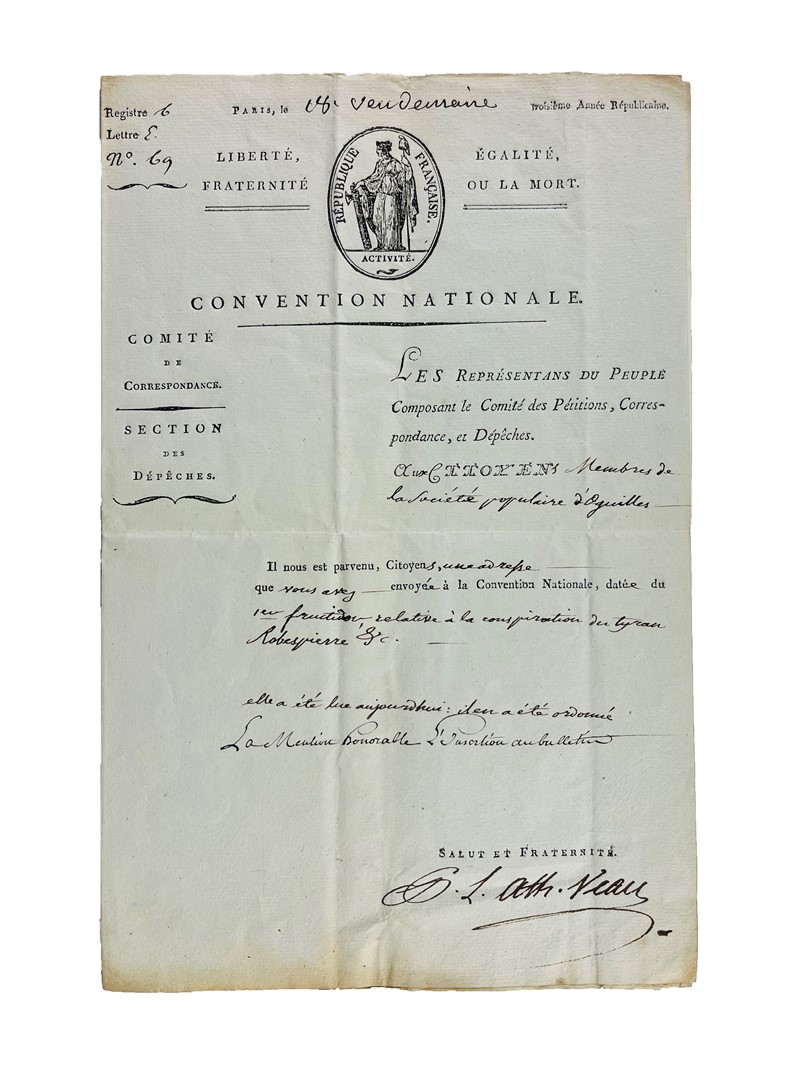 Registre 6
Lettre E.
N°. 69
PARIS, le 18. Vendemiaire troisième Année Républicaine.
LIBERTÉ,
FRATERNITÉ
RÉPUBLIQUE FRANÇAISE.
ACTIVITÉ.
ÉGALITÉ,
OU LA MORT.
CONVENTION NATIONALE.
COMITÉ
DE
CORRESPONDANCE.
SECTION
DES
DÉPÊCHES.
LES REPRÉSENTANS DU PEUPLE
Composant le Comité des Pétitions, Corres-
pondance, et Dépêches.
Aux CITOYENS Membres de
la Société populaire d'Eguilles
Il nous est parvenu, Citoyens, une adresse
que vous avez envoyée à la Convention Nationale, datée du
1er fructidor relative à la conspiration du tyran
Robespierre &c.
elle a été lue aujourdhui : il en a été ordonné
La Mention honorable L'Insertion au bulletin
SALUT ET FRATERNITÉ.
P. L. Ath. Veau